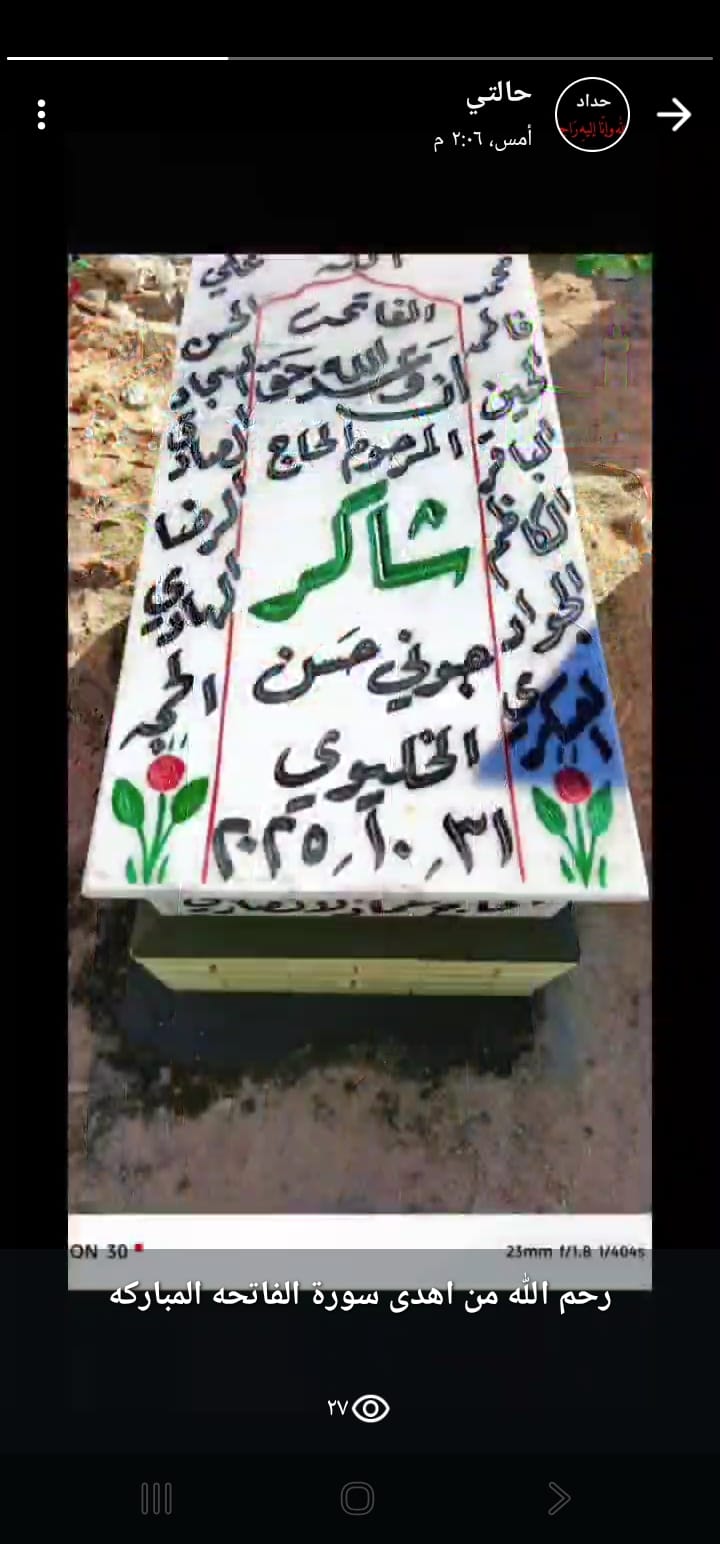 حالتي
أمس، ٢:٠٦ م
حداد
الله
الفاتحة
إن وعد الله حق
المرحوم الحاج
شاكر
جوني حسن
الخليوي
٣١ ٬ ١٠ ٬ ٢٠٢٥
محمد
علي
فاطمه
الحسن
الحسين
السجاد
الباقر
الصادق
الكاظم
الرضا
الجواد
الهادي
العسكري
الحجه
ON 30
23mm f/1.8 1/404s
رحم الله من اهدى سورة الفاتحه المباركه
٢٧